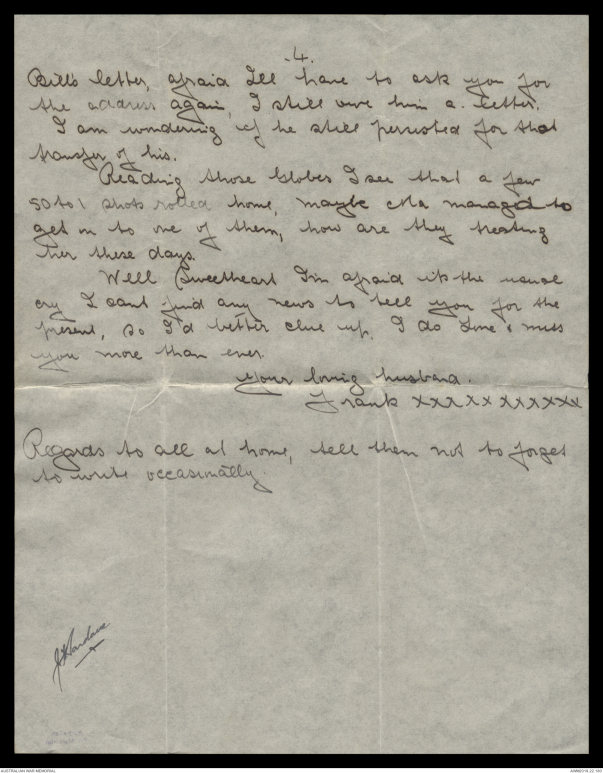 .4.
Bill's letter, afraid I'll have to ask you for
the address again, I still owe him a letter.
I am wondering if he still persisted for that
transfer of his.
Reading those Globes I see that a few
50 to 1 shots rolled home, maybe Ma managed to
get on to one of them, how are they treating
her these days.
Well Sweetheart I'm afraid it's the usual
cry I cant find any news to tell you for the
present, so I'd better clue up. I do love & miss
you more than ever.
Your loving husband.
Frank xxxxx xxxxxx
Regards to all at home, tell them not to forget
to write occasionally.
AUSTRALIAN WAR MEMORIAL